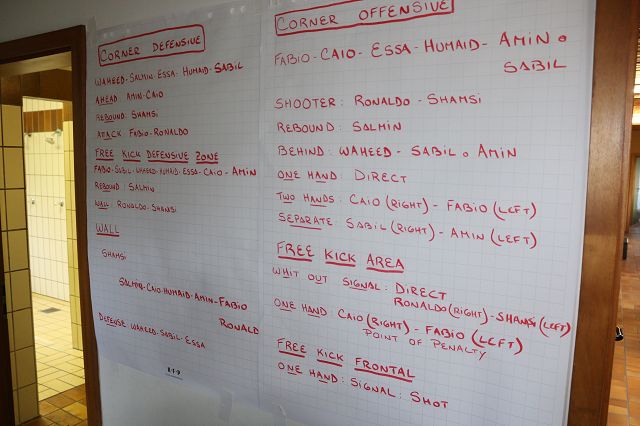 CORNER DEFENSIVE
WAHEED-SALMIN-ESSA-HUMAID-SABIL
AHEAD: AMIN-CAIO
REBOUND: SHAMSI
ATTACK: FABIO-RONALDO
FREE KICK DEFENSIVE ZONE
FABIO-SABIL-WAHEED-HUMAID-ESSA-CAIO-AMIN
REBOUND: SALMIN
WALL: RONALDO-SHAMSI
WALL
SHAMSI
SALMIN-CAIO-HUMAID-AMIN-FABIO
RONALD
DEFENSE: WAHEED-SABIL-ESSA
CORNER OFFENSIVE
FABIO-CAIO-ESSA-HUMAID-AMIN o
SABIL
SHOOTER: RONALDO-SHAMSI
REBOUND: SALMIN
BEHIND: WAHEED-SABIL o AMIN
ONE HAND: DIRECT
TWO HANDS: CAIO (RIGHT)-FABIO (LEFT)
SEPARATE: SABIL (RIGHT)-AMIN (LEFT)
FREE KICK AREA
WHIT OUT SIGNAL: DIRECT
RONALDO (RIGHT)-SHAMSI (LEFT)
ONE HAND: CAIO (RIGHT)-FABIO (LEFT)
POINT OF PENALTY
FREE KICK FRONTAL
ONE HAND: SIGNAL: SHOT